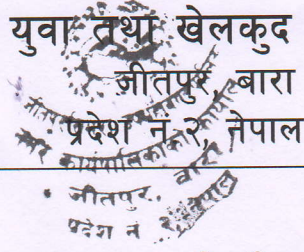 युवा तथा खेलकुद
जीतपुर, बारा
प्रदेश नं २, नेपाल
जीतपुर, बारा
प्रदेश नं २, नेपाल